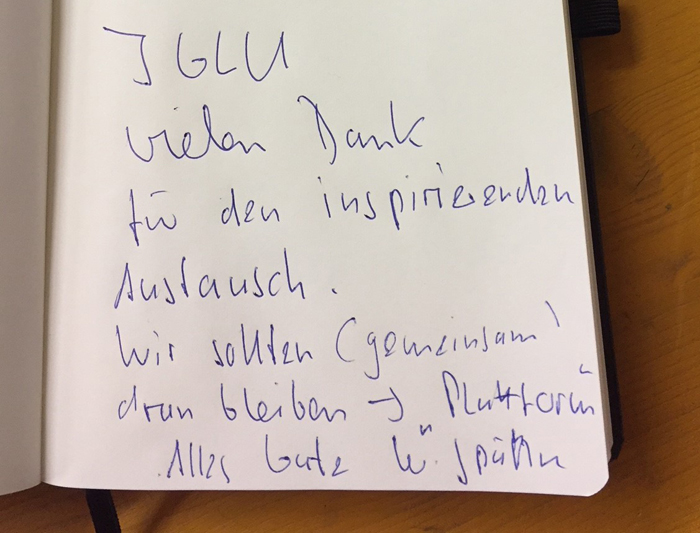 IGLU
vielen Dank
für den inspirierenden
Austausch.
Wir sollten (gemeinsam)
dran bleiben → Plattform"
Alles Gute